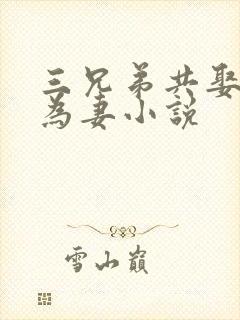 三兄弟共娶
為妻小說
雪山巔